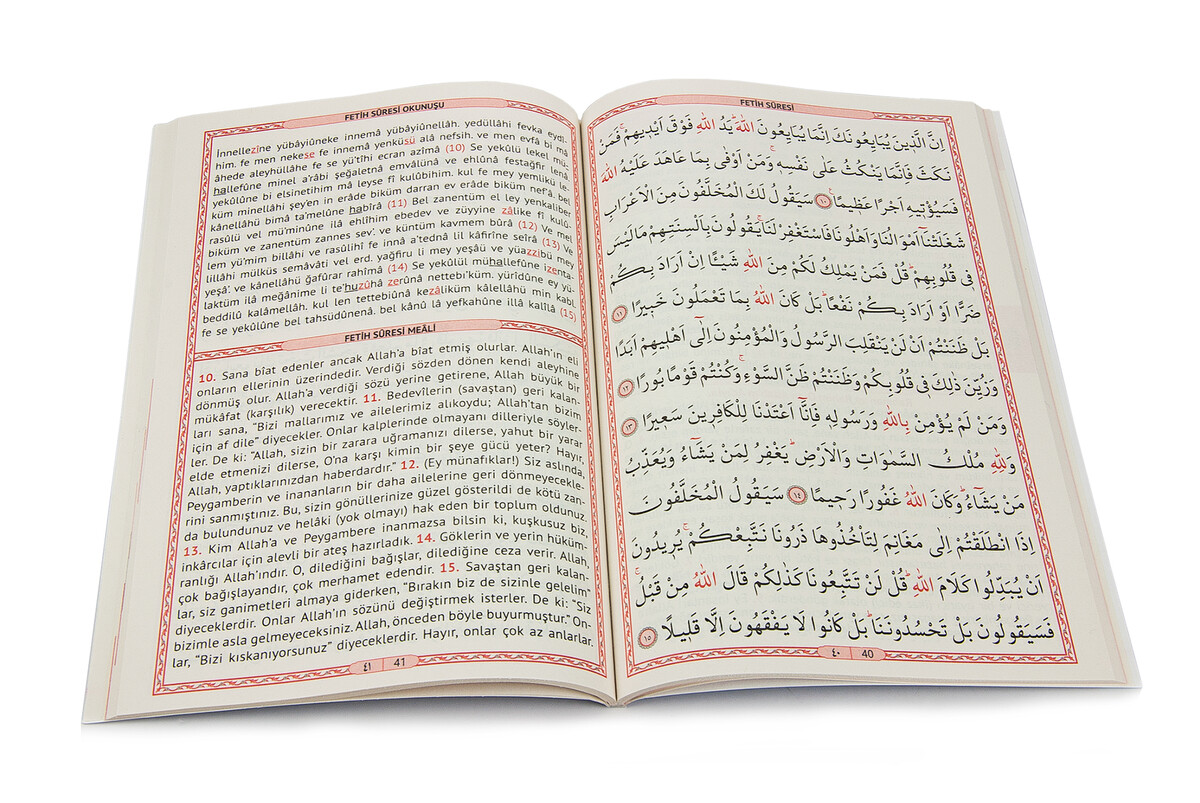 FETİH SÛRESİ
اِنَّ الَّذ۪ينَ يُبَايِعُونَكَ اِنَّمَا يُبَايِعُونَ اللّٰهَۜ يَدُ اللّٰهِ فَوْقَ اَيْد۪يهِمْۚ فَمَنْ
نَكَثَ فَاِنَّمَا يَنْكُثُ عَلٰى نَفْسِه۪ۚ وَمَنْ اَوْفٰى بِمَا عَاهَدَ عَلَيْهُ اللّٰهَ
فَسَيُؤْت۪يهِ اَجْرًا عَظ۪يمًا ۟ ١٠ سَيَقُولُ لَكَ الْمُخَلَّفُونَ مِنَ الْاَعْرَابِ
شَغَلَتْنَٓا اَمْوَالُنَا وَاَهْلُونَا فَاسْتَغْفِرْ لَنَاۚ يَقُولُونَ بِاَلْسِنَتِهِمْ مَا لَيْسَ
ف۪ي قُلُوبِهِمْۜ قُلْ فَمَنْ يَمْلِكُ لَكُمْ مِنَ اللّٰهِ شَيْـًٔا اِنْ اَرَادَ بِكُمْ
ضَرًّا اَوْ اَرَادَ بِكُمْ نَفْعًاۜ بَلْ كَانَ اللّٰهُ بِمَا تَعْمَلُونَ خَب۪يرًا ١١
بَلْ ظَنَنْتُمْ اَنْ لَنْ يَنْقَلِبَ الرَّسُولُ وَالْمُؤْمِنُونَ اِلٰٓى اَهْل۪يهِمْ اَبَدًا
وَزُيِّنَ ذٰلِكَ ف۪ي قُلُوبِكُمْ وَظَنَنْتُمْ ظَنَّ السَّوْءِۚ وَكُنْتُمْ قَوْمًا بُورًا ١٢
وَمَنْ لَمْ يُؤْمِنْ بِاللّٰهِ وَرَسُولِه۪ فَاِنَّٓا اَعْتَدْنَا لِلْكَافِر۪ينَ سَع۪يرًا ١٣
وَلِلّٰهِ مُلْكُ السَّمٰوَاتِ وَالْاَرْضِۜ يَغْفِرُ لِمَنْ يَشَٓاءُ وَيُعَذِّبُ
مَنْ يَشَٓاءُۜ وَكَانَ اللّٰهُ غَفُورًا رَح۪يمًا ١٤ سَيَقُولُ الْمُخَلَّفُونَ
اِذَا انْطَلَقْتُمْ اِلٰى مَغَانِمَ لِتَأْخُذُوهَا ذَرُونَا نَتَّبِعْكُمْۚ يُر۪يدُونَ
اَنْ يُبَدِّلُوا كَلَامَ اللّٰهِۜ قُلْ لَنْ تَتَّبِعُونَا كَذٰلِكُمْ قَالَ اللّٰهُ مِنْ قَبْلُۚ
فَسَيَقُولُونَ بَلْ تَحْسُدُونَنَاۜ بَلْ كَانُوا لَا يَفْقَهُونَ اِلَّا قَل۪يلًا ١٥
٤٠ 40
FETİH SÛRESİ OKUNUŞU
İnnellezîne yübâyiûneke innemâ yübâyiûnellâh. yedüllâhi fevka eydî-
him. fe men nekese fe innemâ yenküsü alâ nefsih. ve men evfâ bi mâ
âhede aleyhüllâhe fe se yü'tîhi ecran azîmâ (10) Se yekûlü lekel mü-
hallefûne minel a'râbi şeğaletnâ emvâlünâ ve ehlûnâ festağfir lenâ.
yekûlûne bi elsinetihim mâ leyse fî kulûbihim. kul fe mey yemlikü le-
küm minellâhi şey'en in erâde biküm darran ev erâde biküm nef'â. bel
kânellâhü bimâ ta'melûne habîrâ (11) Bel zanentüm el ley yenkaliber
rasûlü vel mü'minûne ilâ ehlîhim ebedev ve züyyine zâlike fî kulû-
biküm ve zanentüm zannes sev'. ve küntüm kavmem bûrâ (12) Ve mel
lem yü'mim billâhi ve rasûlihî fe innâ a'tednâ lil kâfirîne seîrâ (13) Ve
lillâhi mülküs semâvâti vel erd. yağfiru li mey yeşâü ve yüazzibü mey
yeşâ'. ve kânellâhü ğafûrar rahîmâ (14) Se yekûlül mühallefûne izenta-
laktüm ilâ meğânime li te'huzûhâ zerûnâ nettebi'küm. yürîdûne ey yü-
beddilû kalâmellâh. kul len tettebiûnâ kezâliküm kâlellâhü min kabl.
fe se yekûlûne bel tahsüdûnenâ. bel kânû lâ yefkahûne illâ kalîlâ (15)
FETİH SÛRESİ MEÂLİ
10. Sana bîat edenler ancak Allah'a bîat etmiş olurlar. Allah'ın eli
onların ellerinin üzerindedir. Verdiği sözden dönen kendi aleyhine
dönmüş olur. Allah'a verdiği sözü yerine getirene, Allah büyük bir
mükâfat (karşılık) verecektir. 11. Bedevîlerin (savaştan) geri kalan-
ları sana, "Bizi mallarımız ve ailelerimiz alıkoydu; Allah'tan bizim
için af dile" diyecekler. Onlar kalplerinde olmayanı dilleriyle söyler-
ler. De ki: "Allah, sizin bir zarara uğramanızı dilerse, yahut bir yarar
elde etmenizi dilerse, O'na karşı kimin bir şeye gücü yeter? Hayır,
Allah, yaptıklarınızdan haberdardır." 12. (Ey münafıklar!) Siz aslında,
Peygamberin ve inananların bir daha ailelerine geri dönmeyecekle-
rini sanmıştınız. Bu, sizin gönüllerinize güzel gösterildi de kötü zan-
da bulundunuz ve helâki (yok olmayı) hak eden bir toplum oldunuz.
13. Kim Allah'a ve Peygambere inanmazsa bilsin ki, kuşkusuz biz,
inkârcılar için alevli bir ateş hazırladık. 14. Göklerin ve yerin hüküm-
ranlığı Allah'ındır. O, dilediğini bağışlar, dilediğine ceza verir. Allah,
çok bağışlayandır, çok merhamet edendir. 15. Savaştan geri kalan-
lar, siz ganimetleri almaya giderken, "Bırakın biz de sizinle gelelim"
diyeceklerdir. Onlar Allah'ın sözünü değiştirmek isterler. De ki: "Siz
bizimle asla gelmeyeceksiniz. Allah, önceden böyle buyurmuştur." On-
lar, "Bizi kıskanıyorsunuz" diyeceklerdir. Hayır, onlar çok az anlarlar.
٤١ 41